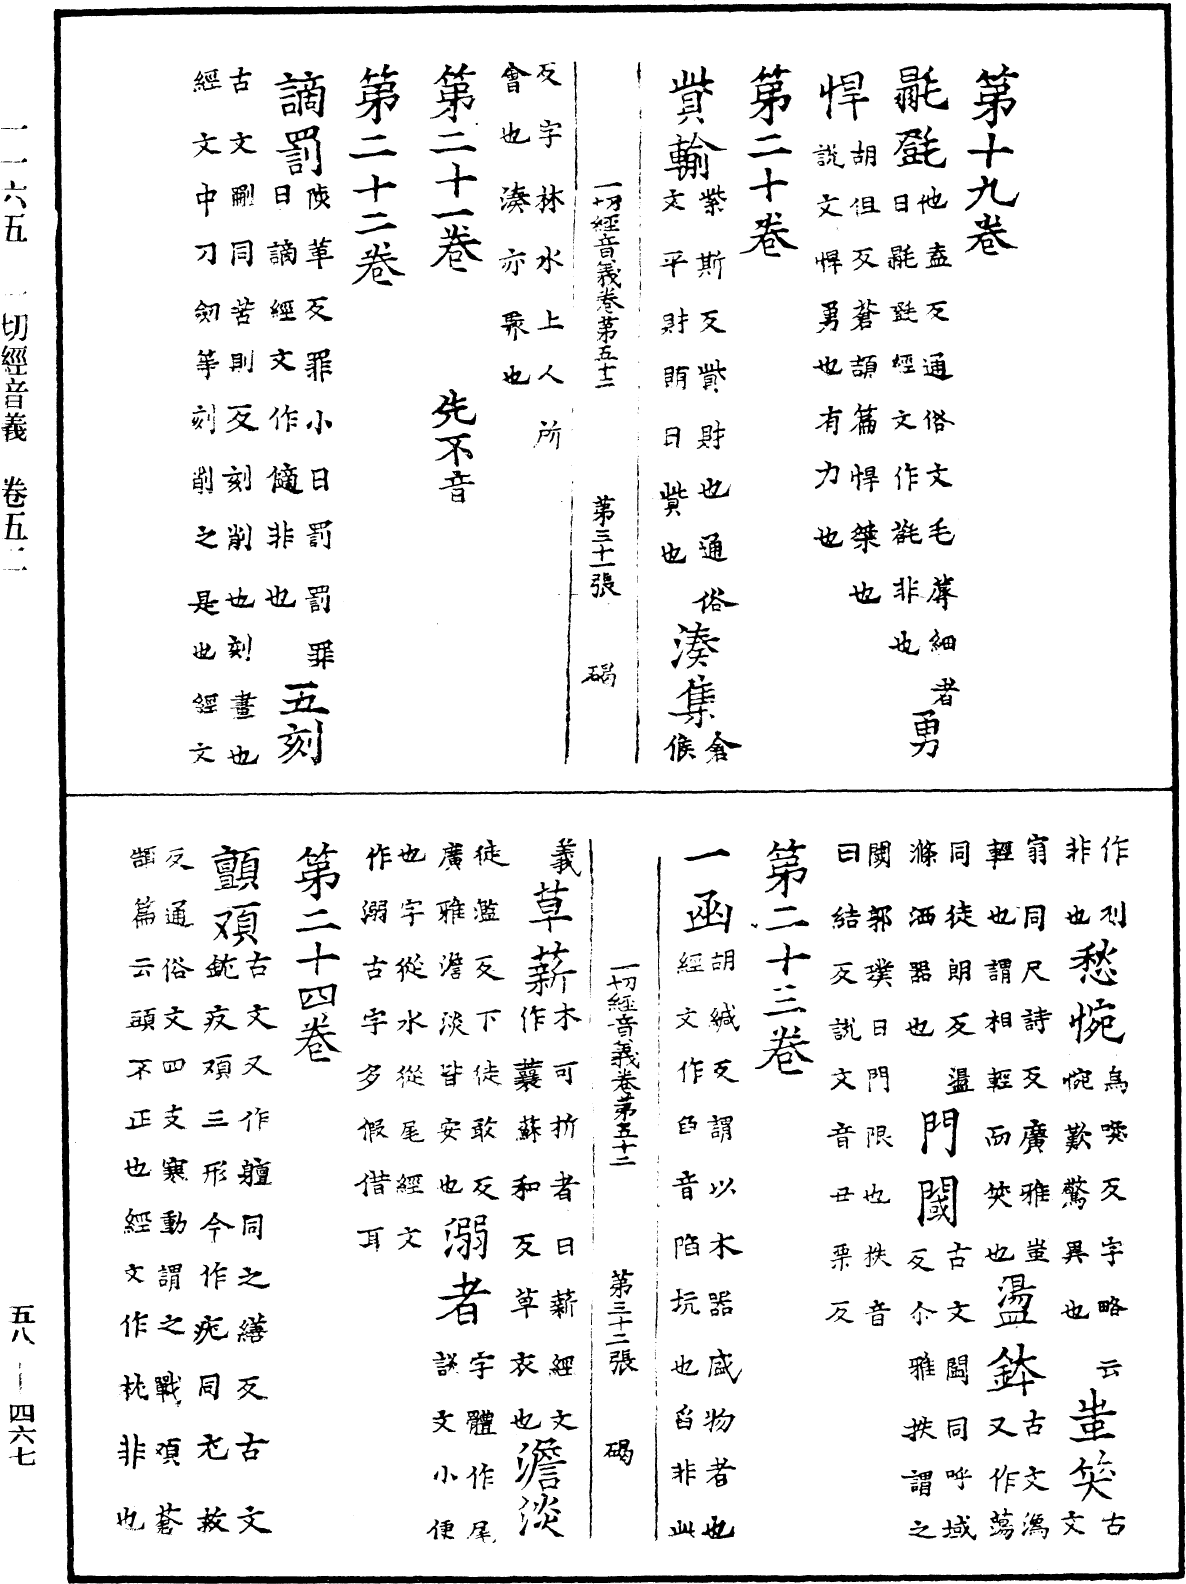 第十九卷
㲲㲪他盍反通俗文毛蓐細者
曰㲲㲪經文作毾非也勇
悍胡但反蒼頡篇悍桀也
說文悍勇也有力也
第二十卷
貲輸紫斯反貲財也通俗
文平財賄曰貲也湊集倉
候
一切經音義卷第五十二 第三十一張 碣
反字林水上人所
會也湊亦聚也
第二十一卷 先不音
第二十二卷
謫罰陟革反罪小曰罰罰罪
曰謫經文作𢕪非也五刻
古文𠜇同苦則反刻削也刻畫也
經文中刀劒等刻削之是也經文
作利
非也愁惋烏喚反字略云
惋歎驚異也蚩笑古文
𡕽同尺詩反廣雅蚩
輕也謂相輕而笑也盪鉢古文潒
又作蕩
同徒朗反盪
滌洒器也門閾古文閾同呼域
反尒雅柣謂之
閾郭璞曰門限也柣音
曰結反說文音丑栗反
第二十三卷
一函胡緘反謂以木器咸物者也
經文作臽音陷坑也臽非此
一切經音義卷第五十二 第三十二張 碣
義草薪木可折者曰薪經文
作蘘蘇和反草衣也澹淡
徒濫反下徒敢反
廣雅澹淡皆安也溺者字體作尾
說文小便
也字從水從尾經文
作溺古字多假借耳
第二十四卷
顫頄古文又作䡀同之繕反古文
䪼疚頄三形今作疣同尤救
反通俗文四支寒動謂之戰頄蒼
頡篇云頭不正也經文作枕非也
一一六五 一切經音義 卷五二
五八—四六七